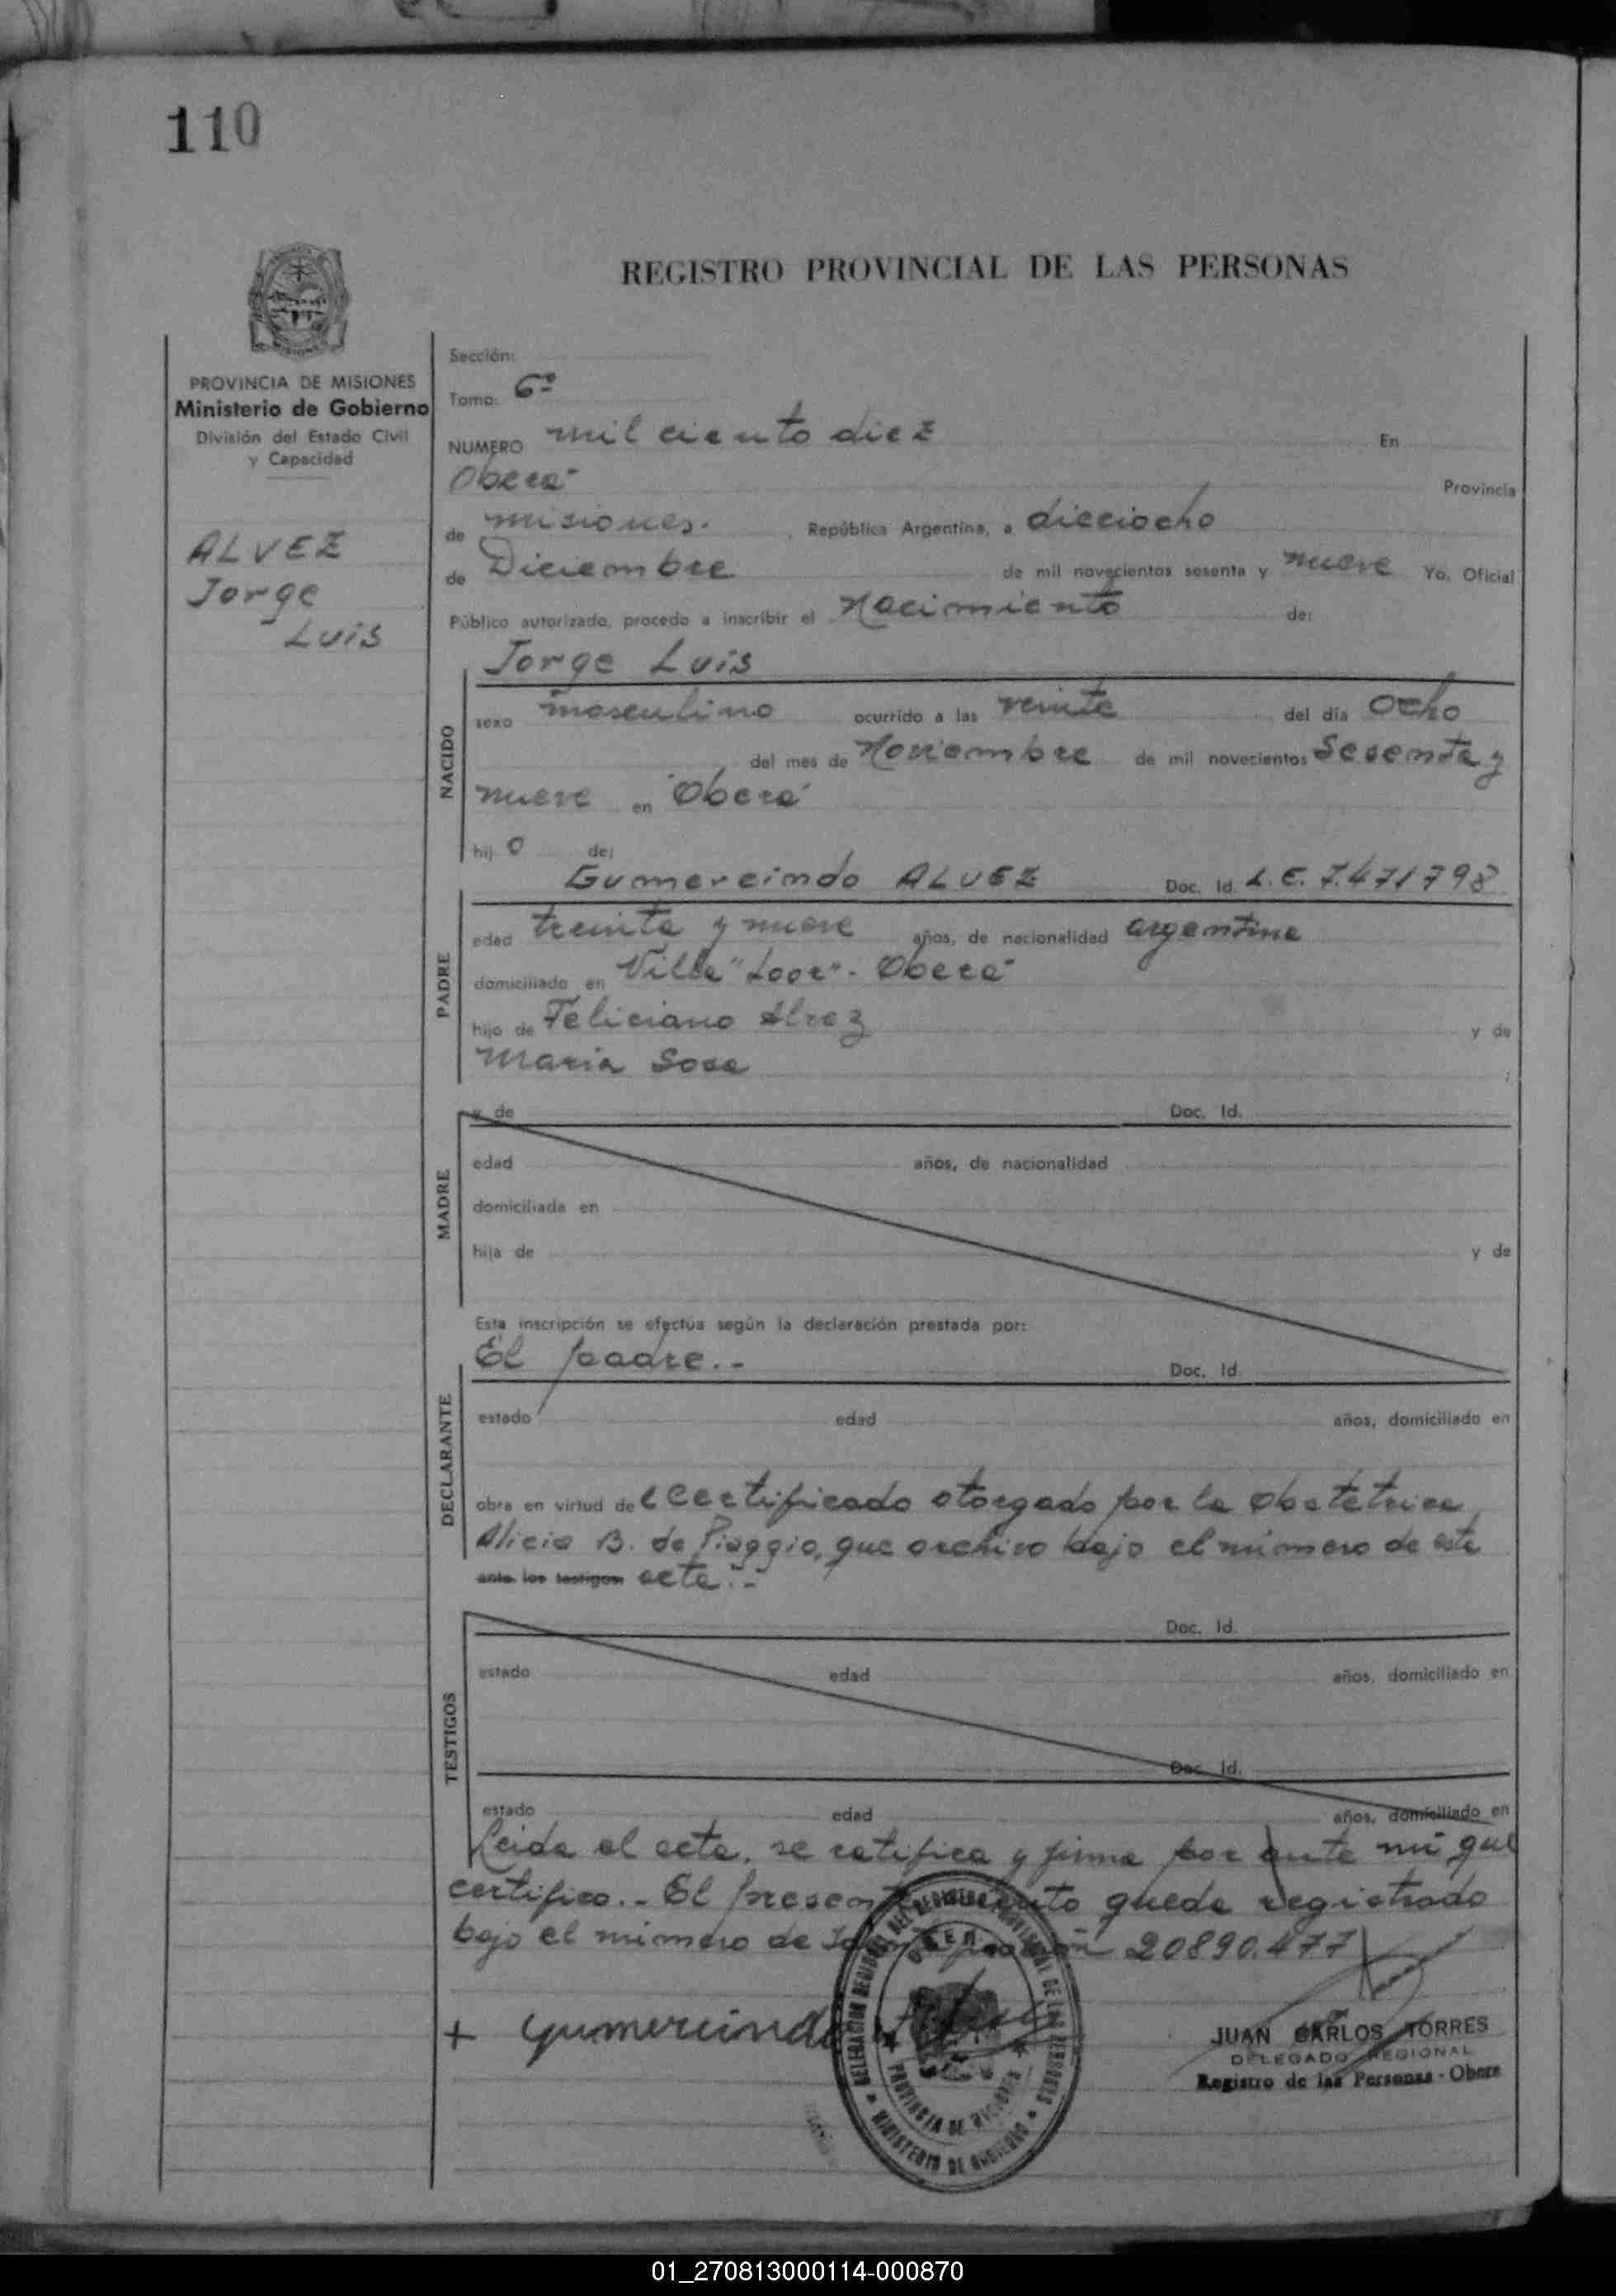 110
REGISTRO PROVINCIAL DE LAS PERSONAS
PROVINCIA DE MISIONES
Ministerio de Gobierno
División del Estado Civil
y Capacidad
ALVEZ
Jorge
Luis
Sección:
Tomo: 6º
NUMERO mil ciento diez En
Oberá Provincia
de misiones. , República Argentina, a dieciocho
de Diciembre de mil novecientos sesenta y nueve Yo, Oficial
Público autorizado, procedo a inscribir el Nacimiento de:
Jorge Luis
NACIDO
sexo masculino ocurrido a las veinte del día ocho
del mes de Noviembre de mil novecientos Sesenta y
nueve en Oberá
hij o de;
Gumercindo ALVEZ Doc. Id. L.E. 7.471798
PADRE
edad treinta y nueve años, de nacionalidad argentina
domiciliado en Villa "Loor". Oberá
hijo de Feliciano Alvez y de
Maria Sosa ;
MADRE
y de Doc. Id.
edad años, de nacionalidad
domiciliada en
hija de y de
Esta inscripción se efectúa según la declaración prestada por:
El padre.- Doc. Id.
DECLARANTE
estado edad años, domiciliado en
obra en virtud del certificado otorgado por la obstétrica
Alicia B. de Piaggio, que archivo bajo el número de este
ante los testigos: acta.-
TESTIGOS
Doc. Id.
estado edad años, domiciliado en
Doc. Id.
estado edad años, domiciliado en
Leida el acta, se ratifica y firma por ante mi que
certifico.- El presente queda registrado
bajo el número de 20890.477
+ Gumercindo
DELEGACION REGIONAL DEL REGISTRO PROVINCIAL DE LAS PERSONAS
OBERA
PROVINCIA DE MISIONES
MINISTERIO DE GOBIERNO
JUAN CARLOS TORRES
DELEGADO REGIONAL
Registro de las Personas - Obera
01_270813000114-000870